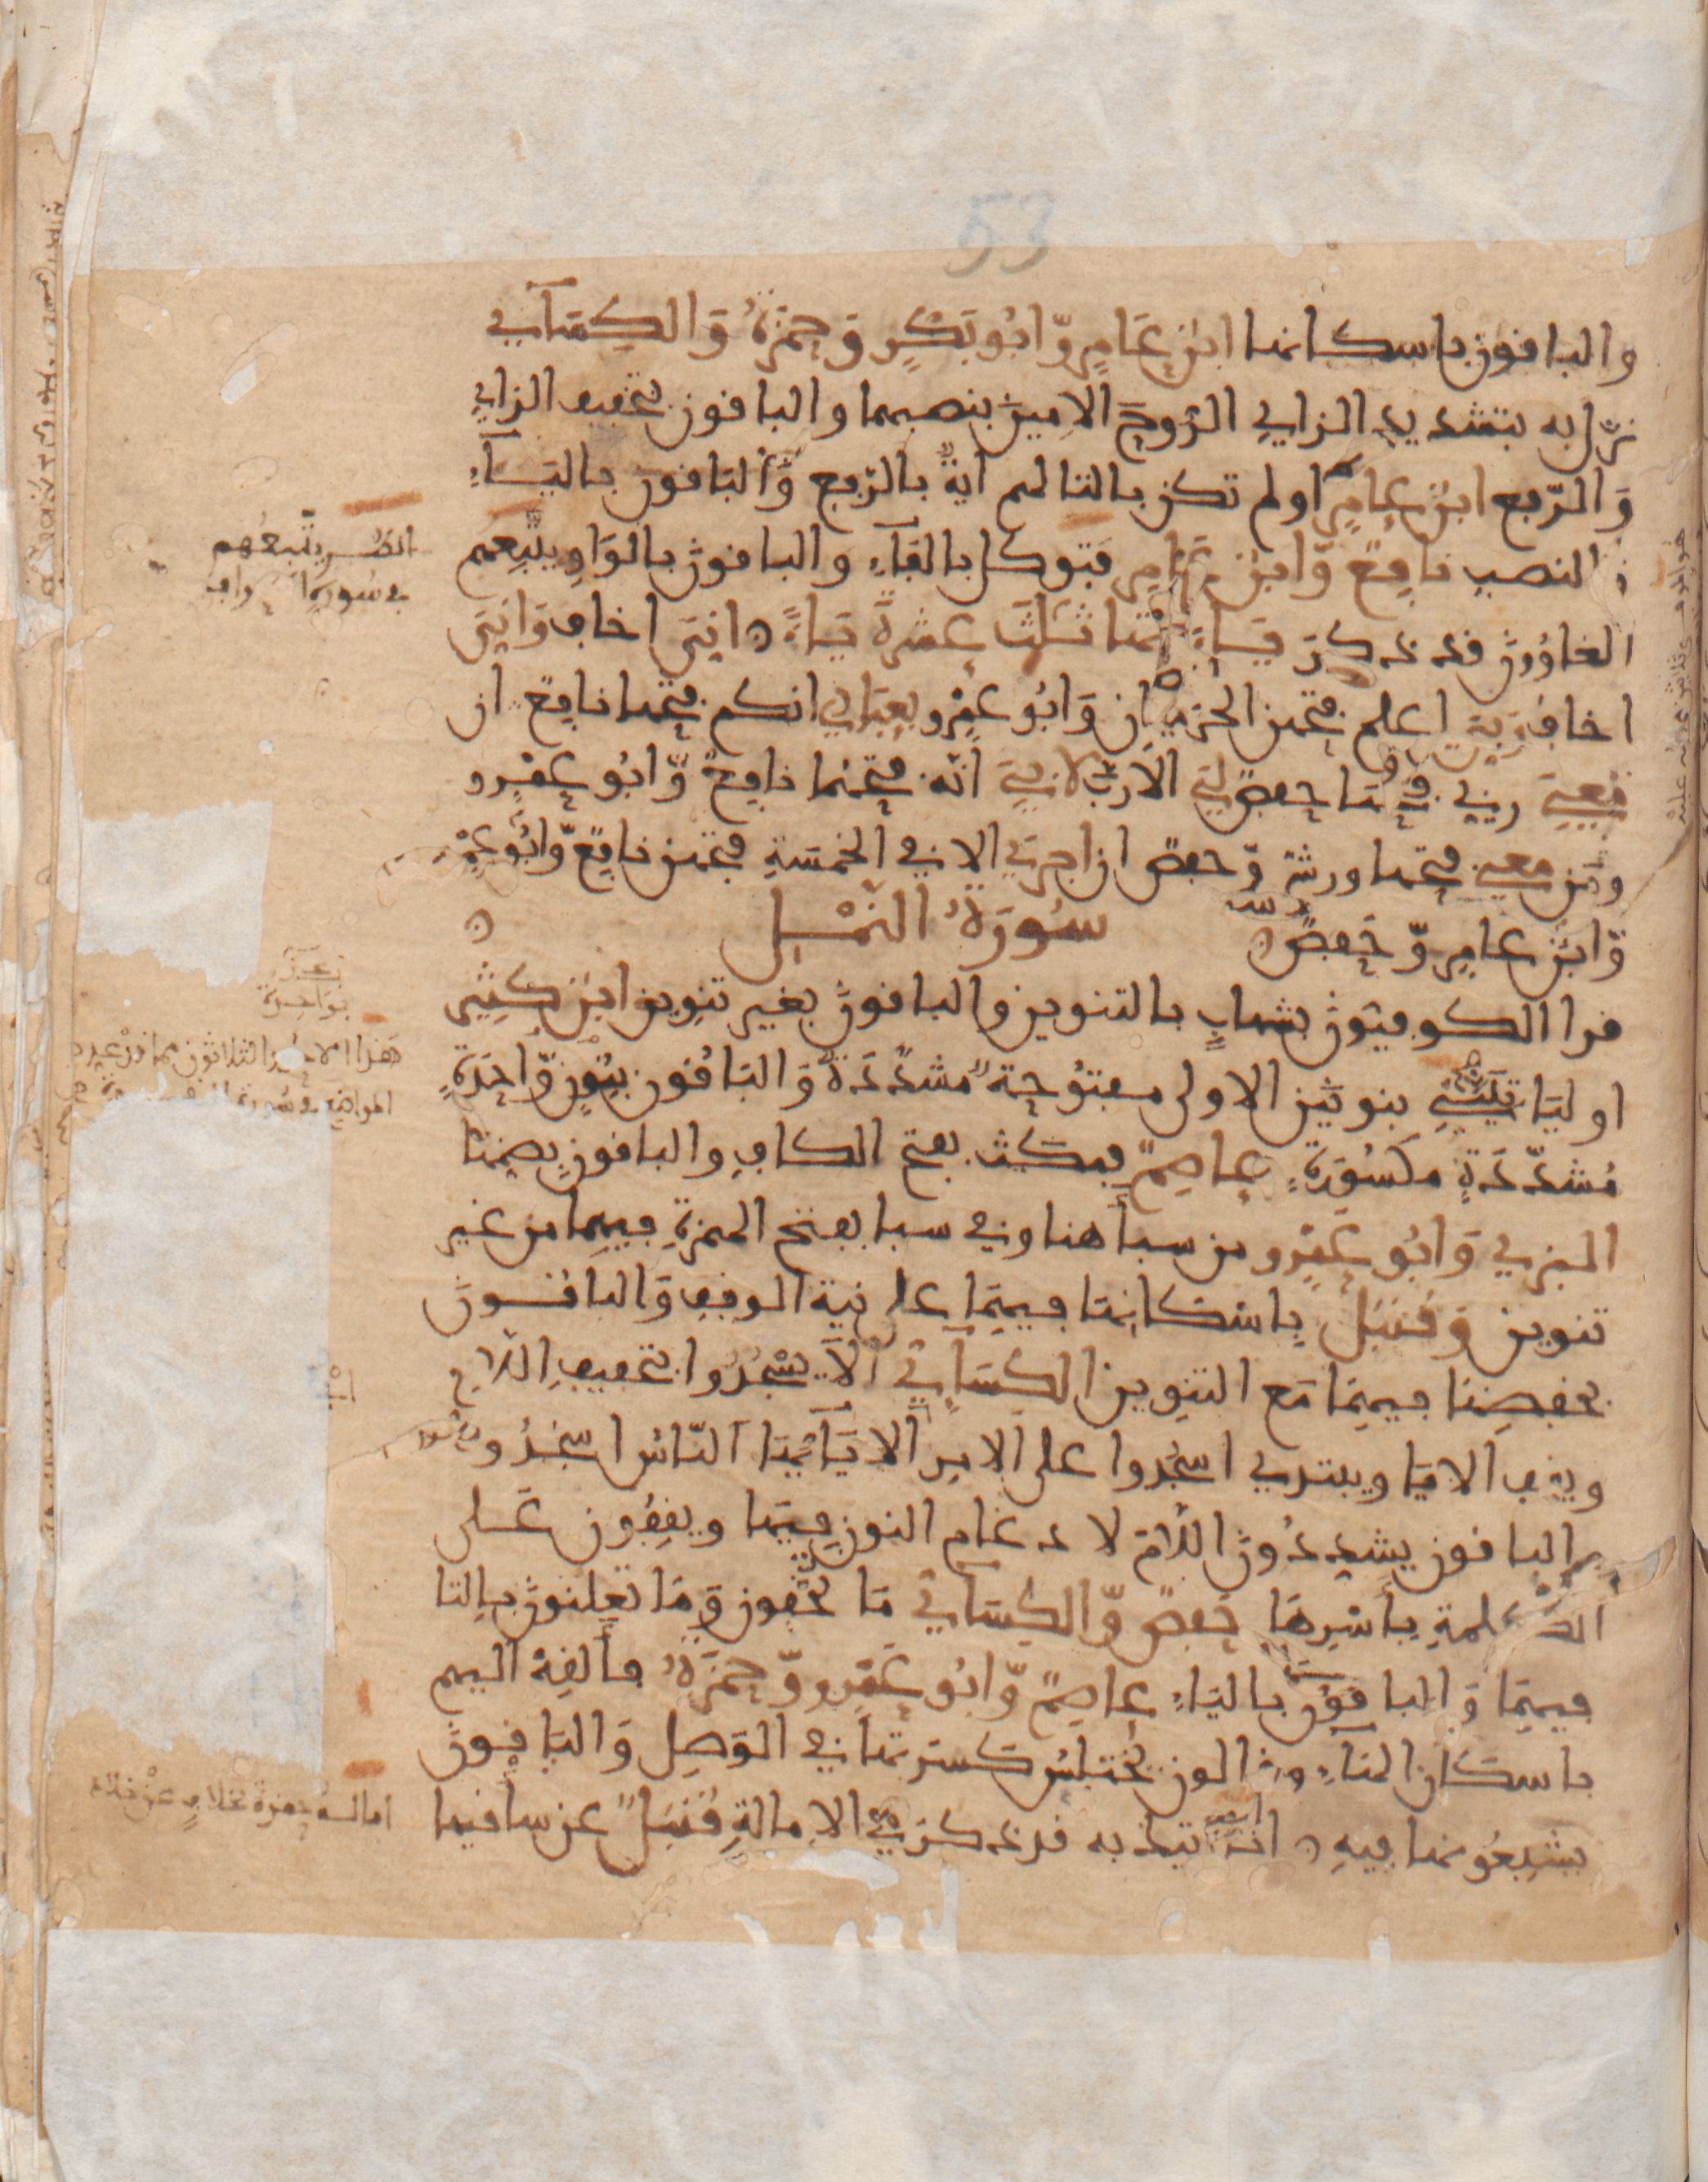 53
والباقون باسكانها ابن عَامِرٍ وّابُو بَكْرٍ وَحمْزَةُ وَالكِسَآءي
نزل به بتشديد الزاي الرُّوحَ الامِينَ بنصبهما والباقون بتخفيف الزاي
وَالرّفع ابنُ عامِرٍ اولم تكن بالتا لهم ايةٌ بالرّفع وَالبَاقون باليَآءِ
والنصب نافِعٌ وّابنُ عَامِرٍ فتوكل بالفَآءِ والباقونَ بالوَاوِ يتْبِعهم
الغاوُونَ قد ذكرَ يَاءَاتها ثَلَثَ عشْرةَ يَاءً انِيَ اخاف وَانِيَ
اخاف رَبيَ اعلم فتحهن الحرمِيّان وَابُو عَمْرٍو بعبَادِي انكم فتحها نافِعٌ ان
مَعِيَ ربي فتحها حفصٌ لِيَ الاَّ رَبّ لابِيَ انّه فتحهما نافِعٌ وَّابُو عَمْرٍو
ومَن معي فتحها ورشٌ وّحفصٌ ان اجرِيَ الا في الخمسَةِ فتحهن نافِعٌ وّابُو عَمْرٍو
وّابنُ عامِرٍ وّحَفصٌ سُورَةُ النَّمْــلِ
قرا الكوفيّونَ بشهابٍ بالتنوين والباقونَ بغير تنوين ابنُ كثِيرٍ
او ليَاتِيَنَّنِي بنونَين الاولى مفتُوحةٌ مشدَّدَةٌ وَالبَاقُون بنُونٍ وّاحِدَةٍ
مُشدّدَةٍ مكسُورَةٍ عاصِمٌ فمكَث بفتح الكافِ والباقون بضمها
البزي وَابُو عَمْرٍو من سبأ هنا وفي سبا بفتح الهمزةِ فيهما من غير
تنوين وَقنبل بِاسْكانِها فيهِمَا على نيةِ الوقفِ وَالباقُــونَ
بخفضِها فيهِمَا مَع التنوين الكسَآءي اَلاَ يسْجُدُوا بتخفيفِ اللام
ويقف الا يَا ويبتدي اسجُدوا على الامرِ الا يَآ ايُّهَا النَّاسُ اسْجُدُوا
والباقون يشددُونَ اللّامَ لادغام النون فِيهَا ويقِفُون عَــلى
الكلمةِ بأسْرِهَا حَفصٌ وّالكِسَآئي مَا تخفُون وَمَا تعلنونَ بالتا
فيهِمَا وَالباقُونَ باليَاءِ عاصِمٌ وّابُو عَمْرٍو وّحمْزَةُ فألقِهْ اليهم
باسكَان الهَاءِ وقالون يختلِسُ كَسرَتها في الوَصِل وَالبَاقونَ
يشبِعُونها فيهِ انا اتيك به قد ذكرَ فِي الامالةِ قُنبُلٌ عن سأقيها
انظــر يتْبعُهم
في سُورة
بوَاحدة
هَذا الاحد الثلاثون مما
المواضِع
امالــه حمزة بخلافٍ عنْ خلاد